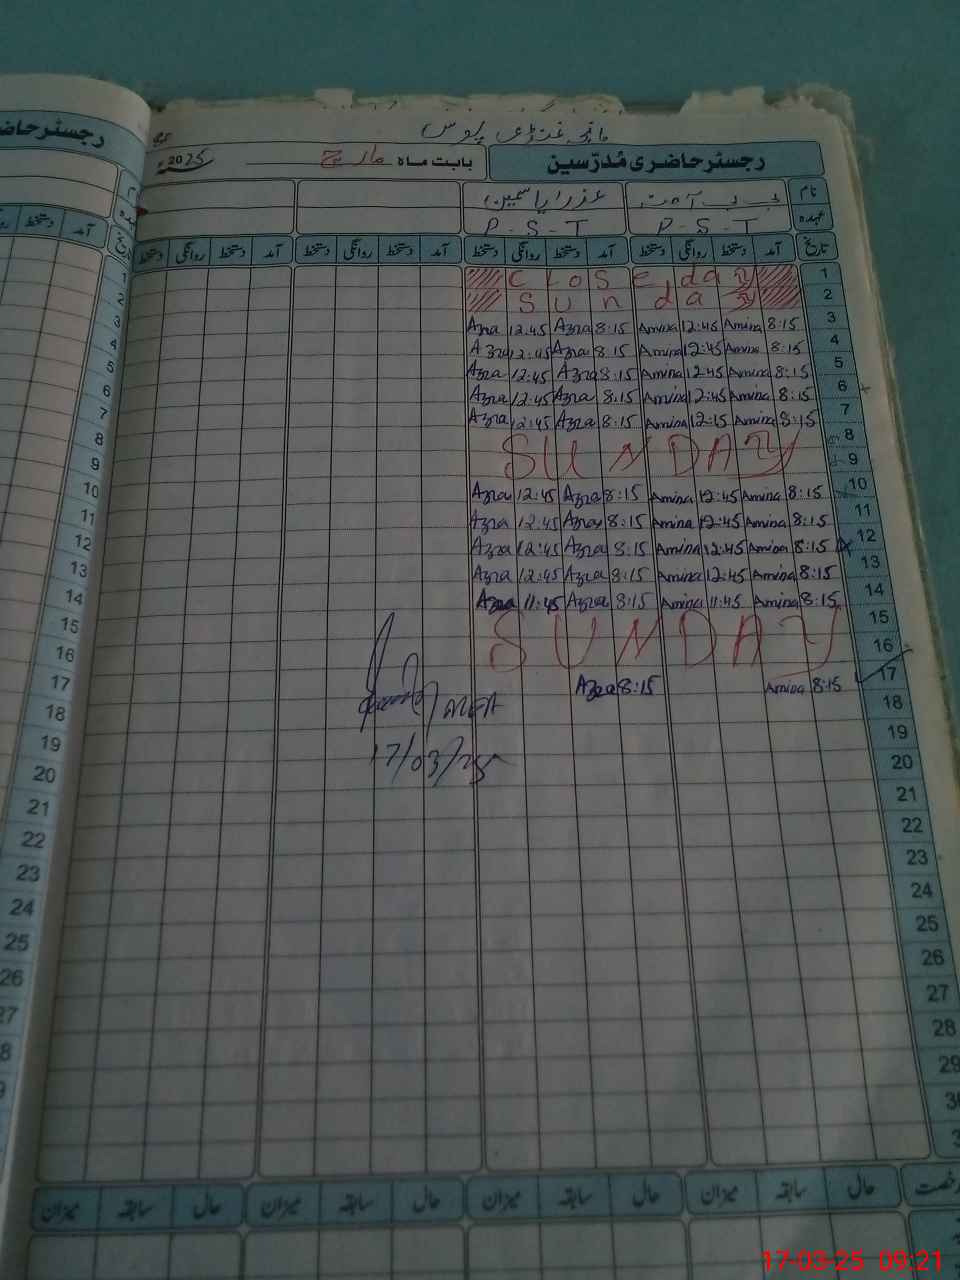 رجسٹر حاضری مُدرّسین بابت ماہ مارچ 2025
نام بی بی آمنہ عذرا یاسمین
عہدہ P-S-T P-S-T
تاریخ آمد دستخط روانگی دستخط آمد دستخط روانگی دستخط آمد دستخط روانگی دستخط آمد دستخط روانگی دستخط
1 Close day
2 Sunday
3 8:15 Amina 12:45 Amina 8:15 Azra 12:45 Azra
4 8:15 Amina 12:45 Amina 8:15 Azra 12:45 Azra
5 8:15 Amina 12:45 Amina 8:15 Azra 12:45 Azra
6 8:15 Amina 12:45 Amina 8:15 Azra 12:45 Azra
7 8:15 Amina 12:15 Amina 8:15 Azra 12:45 Azra
8
9 SUNDAY
10 8:15 Amina 12:45 Amina 8:15 Azra 12:45 Azra
11 8:15 Amina 12:45 Amina 8:15 Azra 12:45 Azra
12 8:15 Amina 12:45 Amina 8:15 Azra 12:45 Azra
13 8:15 Amina 12:45 Amina 8:15 Azra 12:45 Azra
14 8:15 Amina 11:45 Amina 8:15 Azra 11:45 Azra
15
16 SUNDAY
17 8:15 Amina 8:15 Azra
18
17/03/25
19
20
21
22
23
24
25
26
27
28
29
30
حال سابقہ میزان حال سابقہ میزان حال سابقہ میزان حال سابقہ میزان
17-03-25 09:21